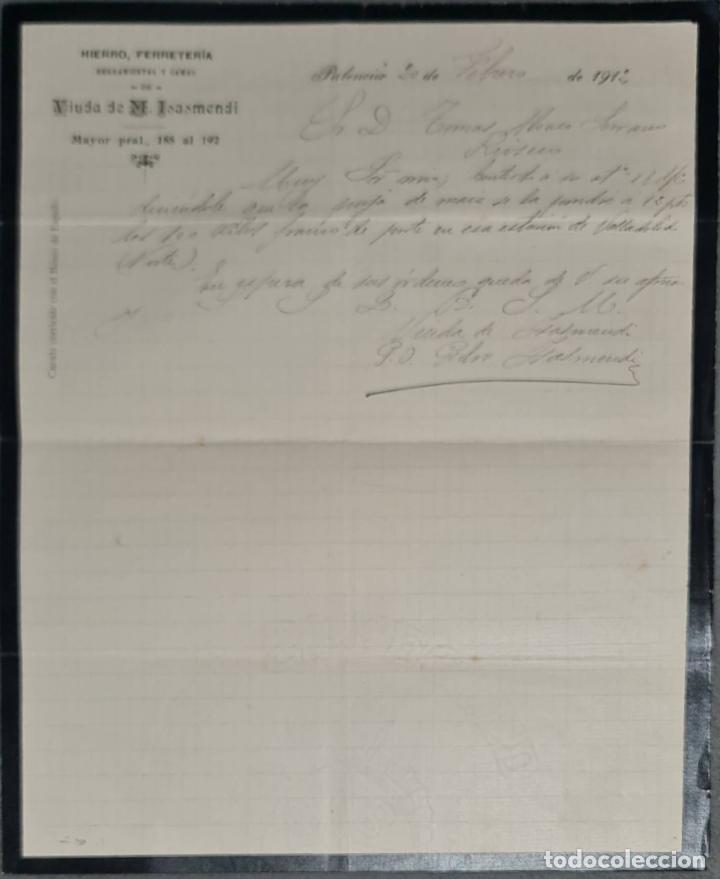 HIERRO, FERRETERÍA
HERRAMIENTAS Y CAMAS
DE
Viuda de M. Isasmendi
Mayor pral., 188 al 192
Palencia 20 de Febrero de 1912
Sr D. Tomas Alonso
Rioseco
Muy Sr mio; Contesto a su
diciendole que la de maiz se la pondre a 12 pts
los 100 kilos franco de porte en esa estación de Valladolid
(Norte).
En espera de sus órdenes queda de V. su afmo
S. S. M.
Viuda de Isasmendi
P.O. Isasmendi
Cuenta corriente con el Banco de España.
todocoleccion.net